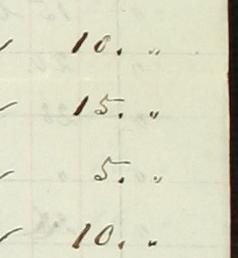 10. "
15. "
5. "
10. "